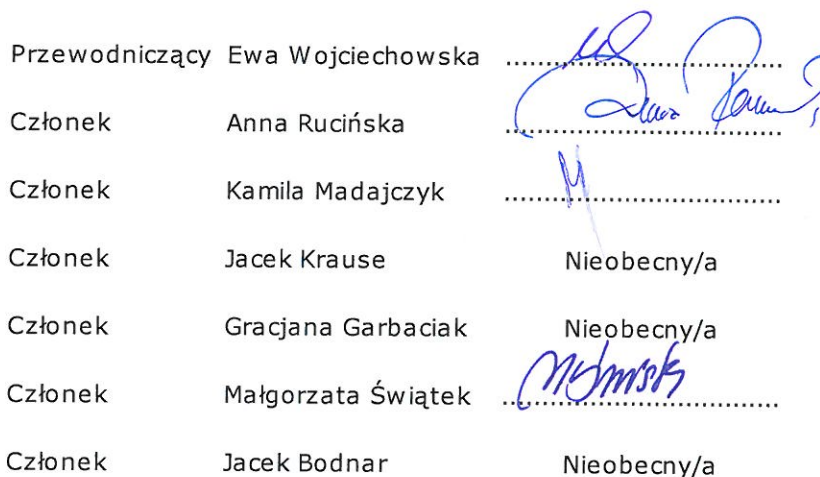 Przewodniczący Ewa Wojciechowska ........................................
Członek Anna Rucińska ........................................
Członek Kamila Madajczyk ........................................
Członek Jacek Krause Nieobecny/a
Członek Gracjana Garbaciak Nieobecny/a
Członek Małgorzata Świątek ........................................
Członek Jacek Bodnar Nieobecny/a